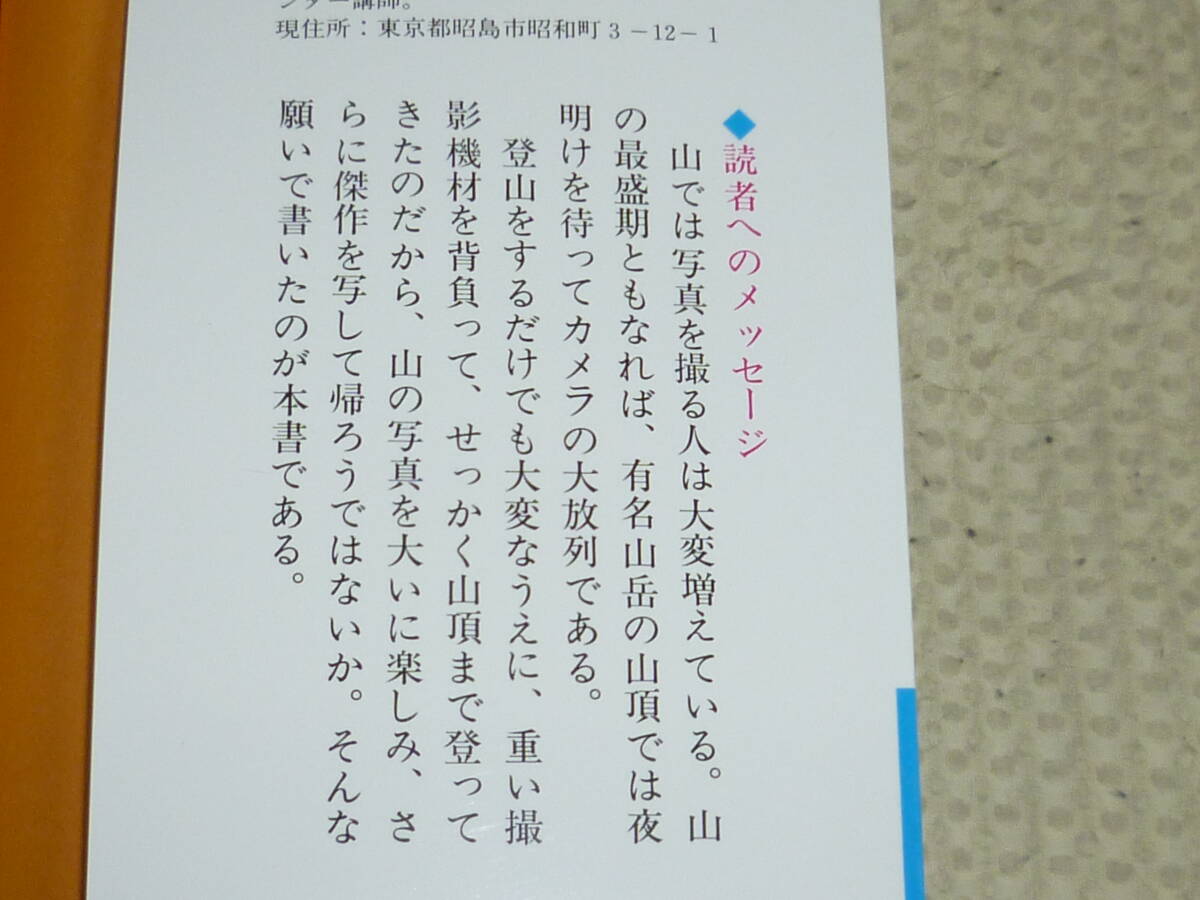 ンター講師。
現住所：東京都昭島市昭和町3－12－1
◆読者へのメッセージ
山では写真を撮る人は大変増えている。山
の最盛期ともなれば、有名山岳の山頂では夜
明けを待ってカメラの大放列である。
登山をするだけでも大変なうえに、重い撮
影機材を背負って、せっかく山頂まで登って
きたのだから、山の写真を大いに楽しみ、さ
らに傑作を写して帰ろうではないか。そんな
願いで書いたのが本書である。